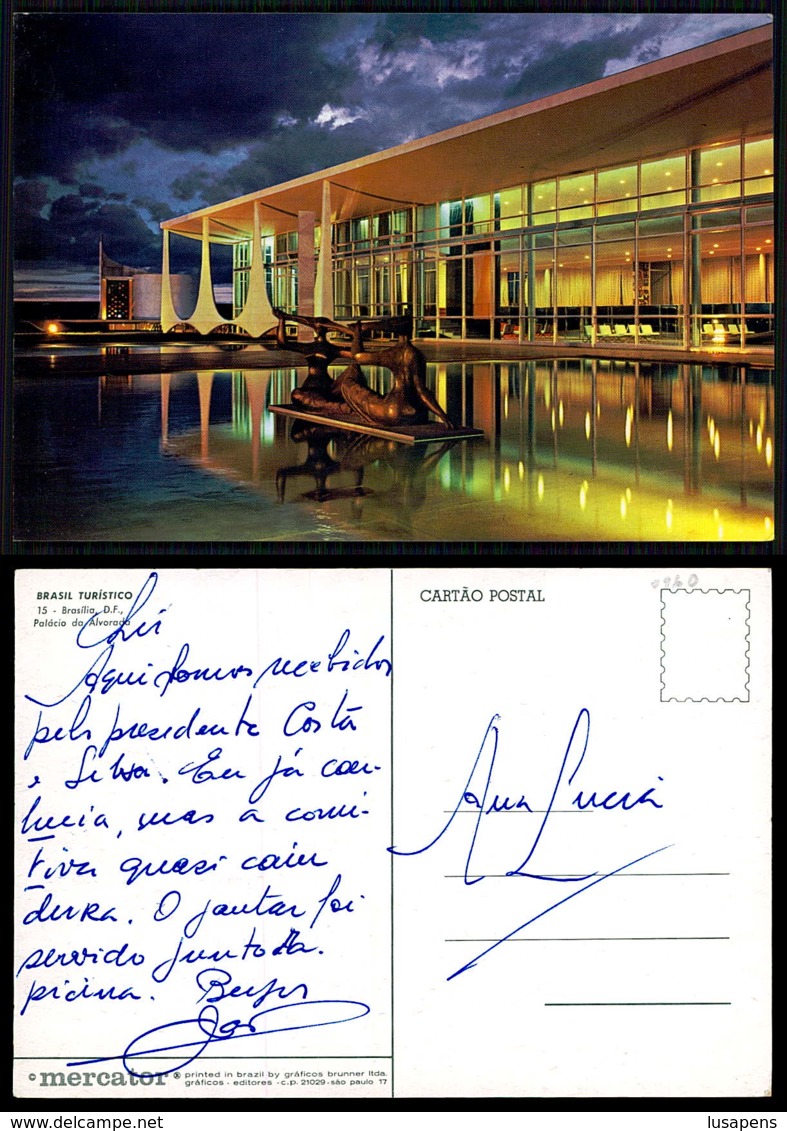 BRASIL TURÍSTICO
15 - Brasília, D.F.,
Palácio da Alvorada
Aqui fomos recebidos
pelo presidente Costa
e Silva. Eu já co-
nhecia, mas a comi-
tiva quasi caiu
dura. O jantar foi
servido junto da
piscina. Beijos
© mercator ® printed in brazil by gráficos brunner ltda.
gráficos - editores - c.p. 21029 - são paulo 17
CARTÃO POSTAL
Ana Lucia
lusapens
delcampe.net